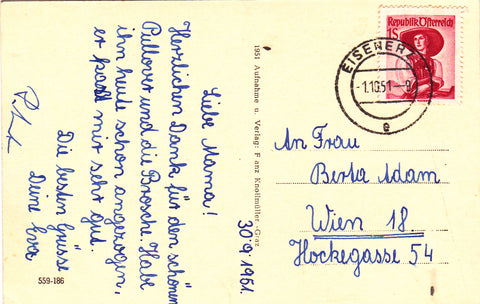 Liebe Mama!
Herzlichen Dank für den schönen
Pullover und die Brosche. Habe
ihn heute schon angezogen,
er paßt mir sehr gut.
Die besten Grüsse
Deine Eva
30.9.1951.
559-186
1951 Aufnahme u. Verlag: Franz Knollmüller-Graz
Republik Österreich
1S
EISENERZ
-1.10.51-8
e
An Frau
Berta Adam
Wien 18.
Hockegasse 54